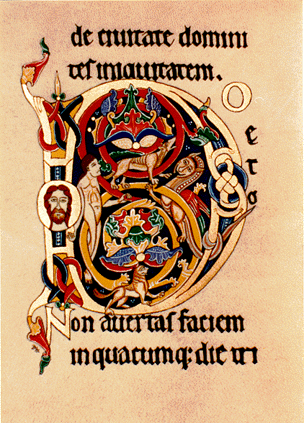 de ciuitate domini
tes iniquitatem.
D O
e
o
Non auertas faciem
in quacumq: die tri